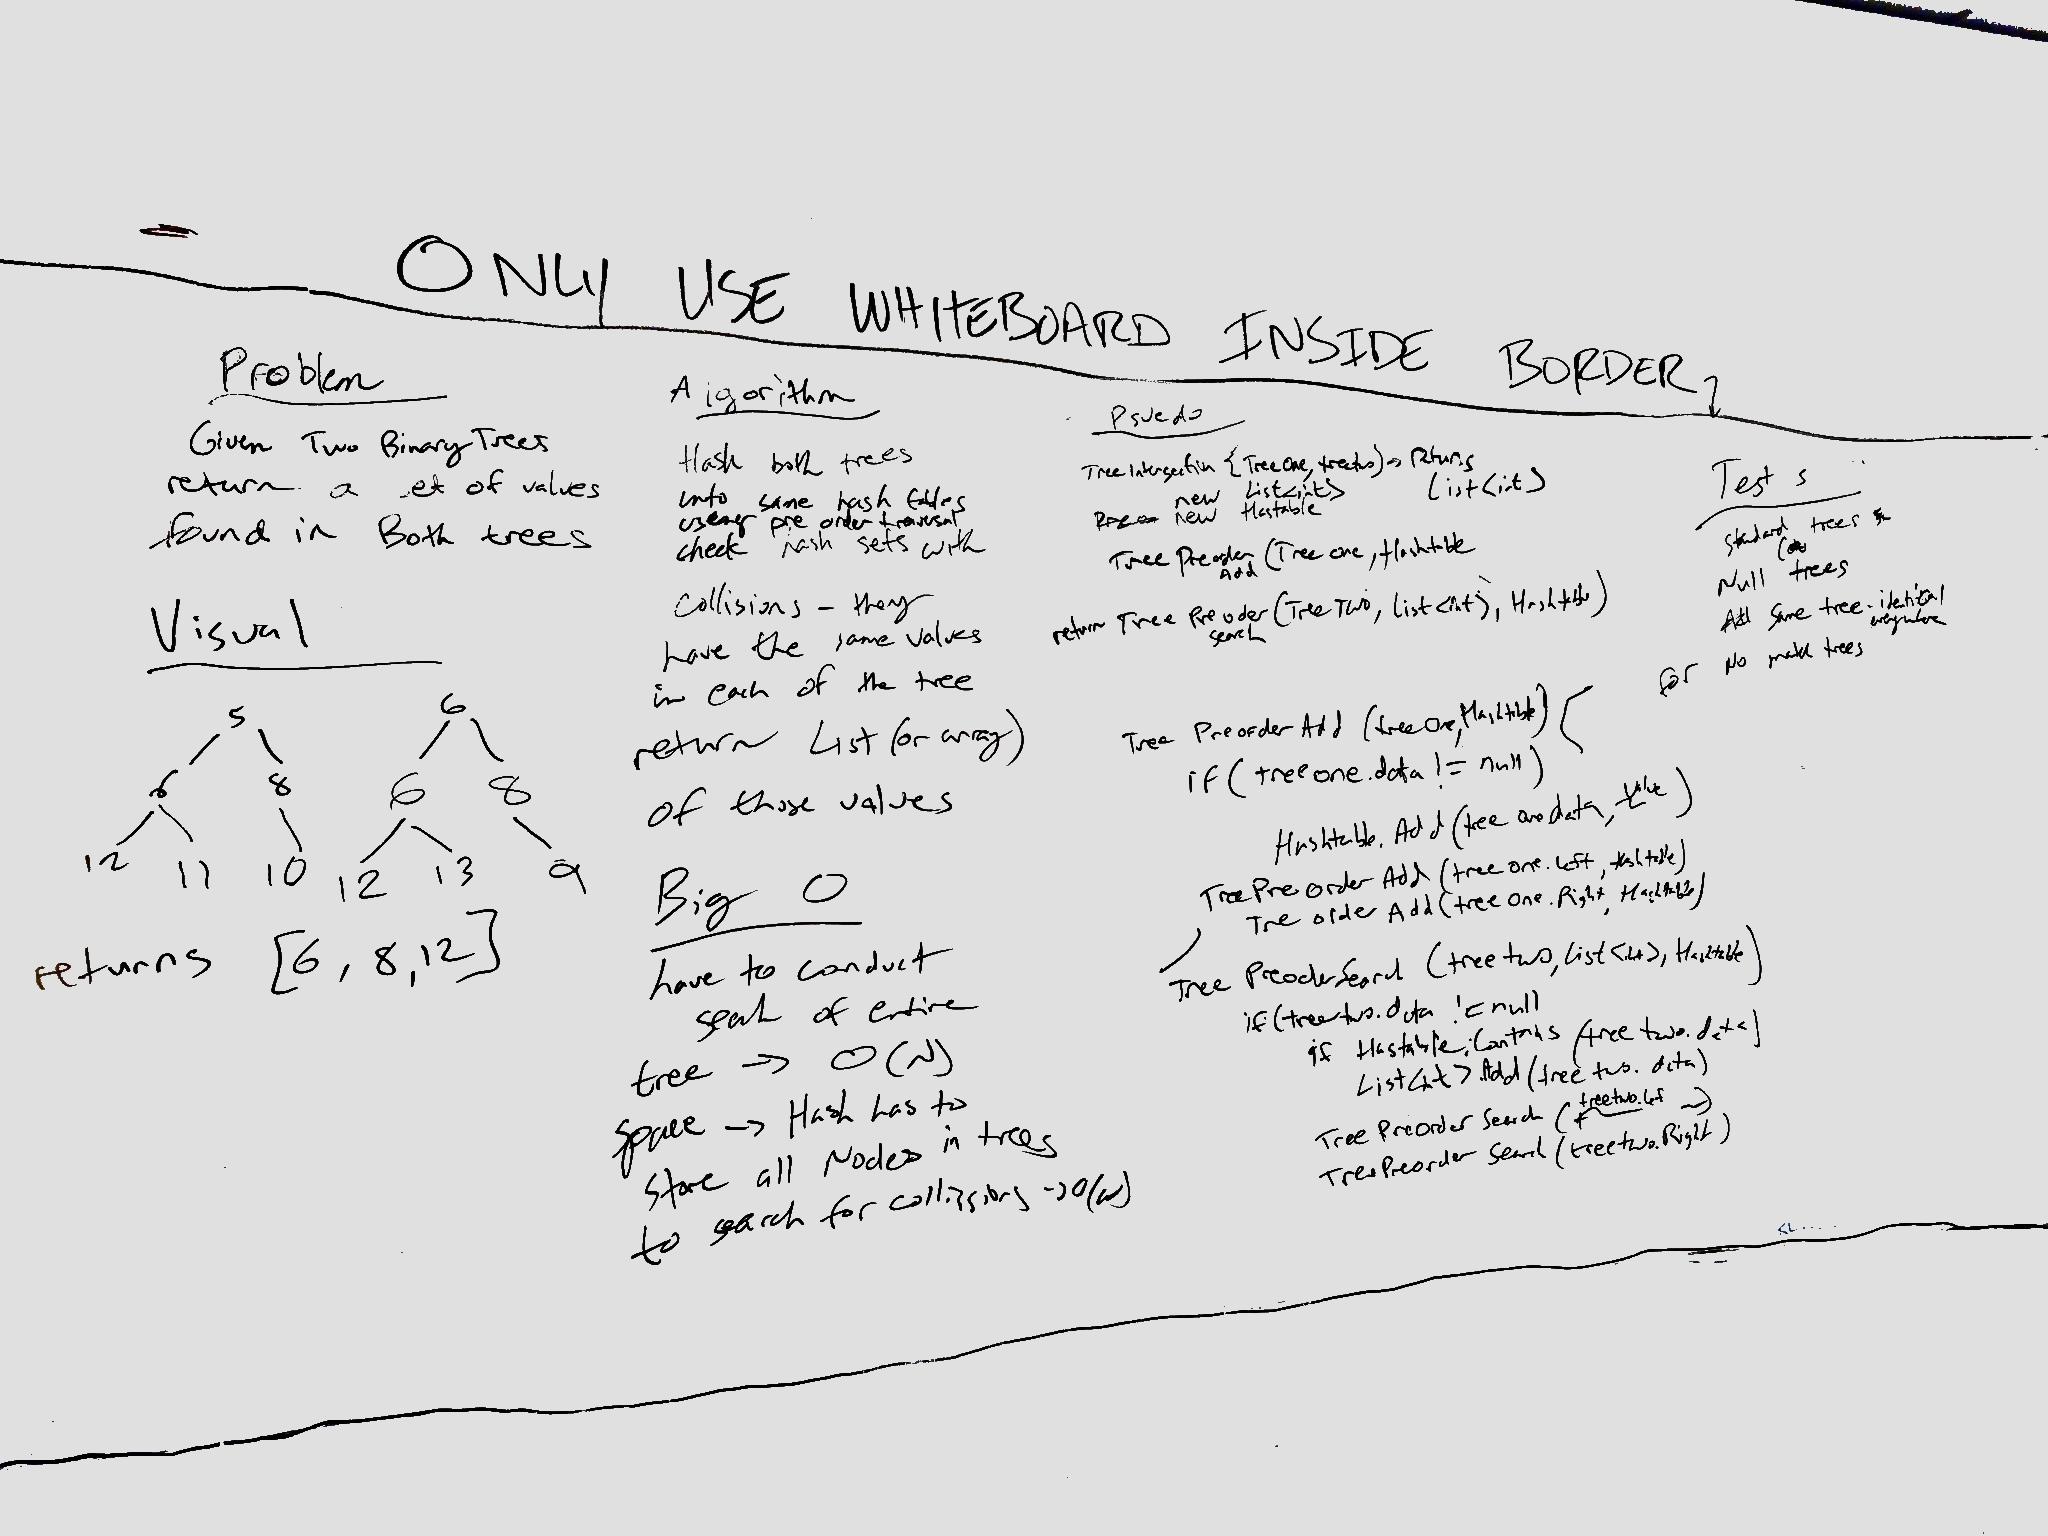 ONLY USE WHITEBOARD INSIDE BORDER
Problem
Given Two Binary Trees
return a set of values
found in Both trees
Visual
5
6 8
12 11 10
6
6 8
12 13 9
returns [6, 8, 12]
Algorithm
Hash both trees
unto same hash tables
using pre order traversal
check hash sets with
collisions - they
have the same values
in each of the tree
return List (or array)
of those values
Big O
have to conduct
seach of entire
tree -> O(N)
space -> Hash has to
store all Nodes in trees
to search for collissions -> O(N)
Psuedo
Tree Intersection {Tree One, tree two) -> Returns
new List<int> List<int>
new Hastable
Tree Preorder (Tree one, Hashtable
Add
return Tree Preorder (Tree Two, List<int>, Hashtable)
search
Tree Preorder Add (tree One, Hashtable) {
if (tree one.data != null)
Hashtable.Add (tree one data, value)
Tree Preorder Add (tree one.Left, Hashtable)
Tre order Add (tree one.Right, Hashtable)
Tree PreoderSearch (tree two, List<int>, Hashtable)
if (tree two.data != null
if Hastable.Contains (tree two.data]
List<int>.Add (tree two. data)
Tree Preorder Search (treetwo.left ->)
Tree Preorder Search (treetwo.Right)
Tests
Standard trees
Null trees
Same tree - identical
everywhere
for No match trees